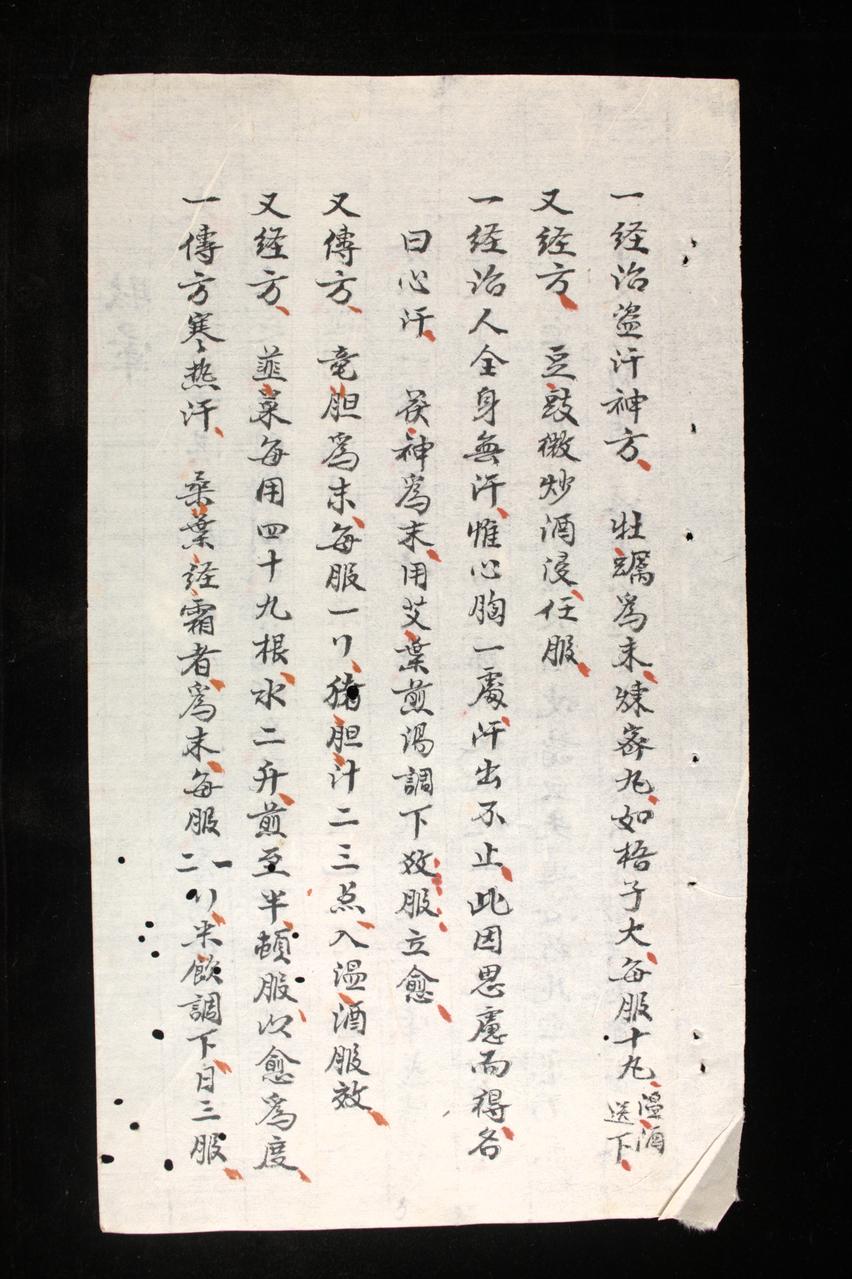 一経治盗汗神方、　牡蠣為末、煉蜜丸、如梧子大、每服十丸、溫酒送下、
又経方、　豆豉微炒酒浸、任服、
一経治人全身無汗、惟心胸一處、汗出不止、此因思慮而得名、
曰心汗、　茯神為末、用艾葉煎湯調下效服立愈、
又傳方、　竜胆為末、每服一匁、猪胆汁二三点、入溫酒服效、
又経方、　韮菜每用四十九根、水二升、煎至半、頓服、以愈為度、
一傳方寒熱汗、　桑葉経霜者、為末、每服一二匁、米飲調下、日三服、